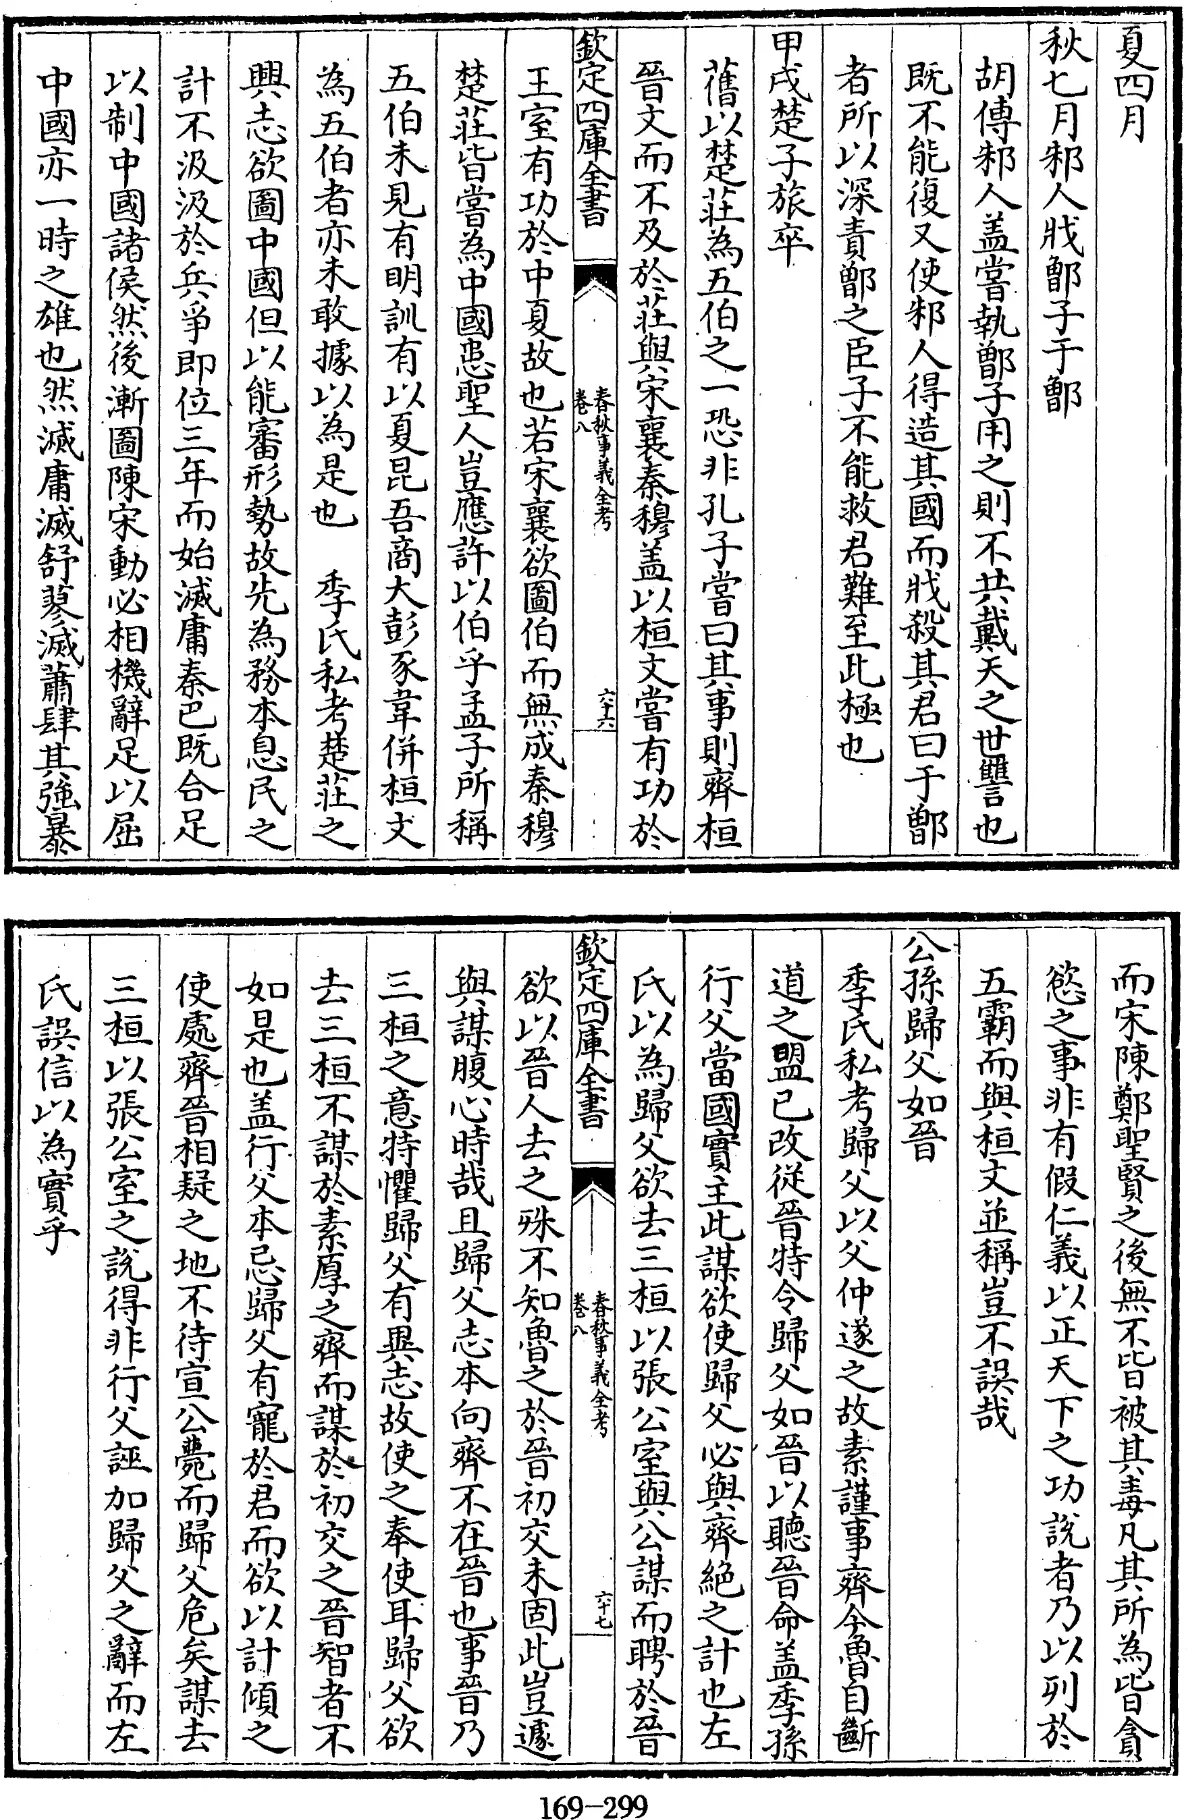 夏四月
秋七月邾人戕鄫子于鄫
胡傳邾人盖嘗執鄫子用之則不共戴天之世讐也
既不能復又使邾人得造其國而戕殺其君曰于鄫
者所以深責鄫之臣子不能救君難至此極也
甲戌楚子旅卒
舊以楚莊為五伯之一恐非孔子嘗曰其事則齊桓
晉文而不及於莊與宋襄秦穆盖以桓文嘗有功於
欽定四庫全書
春秋事義全考
卷八
六十六
王室有功於中夏故也若宋襄欲圖伯而無成秦穆
楚莊皆嘗為中國患聖人豈應許以伯乎孟子所稱
五伯未見有明訓有以夏昆吾商大彭豕韋併桓文
為五伯者亦未敢據以為是也　季氏私考楚莊之
興志欲圖中國但以能審形勢故先為務本息民之
計不汲汲於兵爭即位三年而始滅庸秦巴既合足
以制中國諸侯然後漸圖陳宋動必相機辭足以屈
中國亦一時之雄也然滅庸滅舒蓼滅蕭肆其強暴
而宋陳鄭聖賢之後無不皆被其毒凡其所為皆貪
慾之事非有假仁義以正天下之功說者乃以列於
五霸而與桓文並稱豈不誤哉
公孫歸父如晉
季氏私考歸父以父仲遂之故素謹事齊今魯自斷
道之盟已改從晉特令歸父如晉以聽晉命盖季孫
行父當國實主此謀欲使歸父必與齊絕之計也左
氏以為歸父欲去三桓以張公室與公謀而聘於晉
欽定四庫全書
春秋事義全考
卷八
六十七
欲以晉人去之殊不知魯之於晉初交未固此豈遽
與謀腹心時哉且歸父志本向齊不在晉也事晉乃
三桓之意特懼歸父有異志故使之奉使耳歸父欲
去三桓不謀於素厚之齊而謀於初交之晉智者不
如是也盖行父本忌歸父有寵於君而欲以計傾之
使處齊晉相疑之地不待宣公薨而歸父危矣謀去
三桓以張公室之說得非行父誣加歸父之辭而左
氏誤信以為實乎
169-299